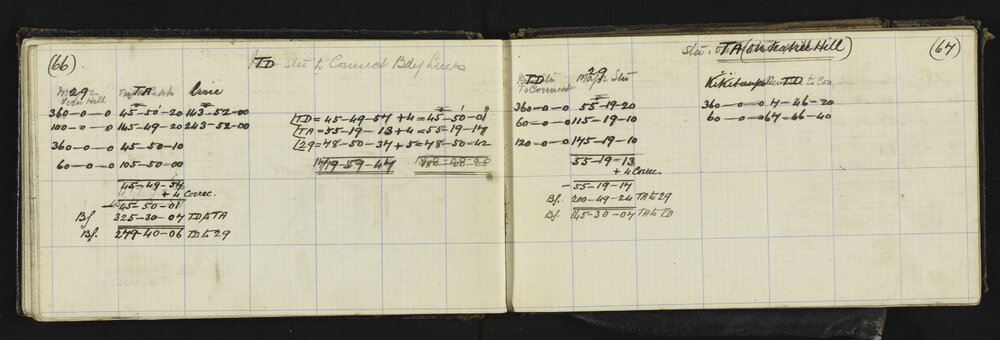 (66)
TD Stn to Connect Bdy Lines
29 TA line
Hill
360-0-0 45-50-20 143-52-00
100-0-0 145-49-20 243-52-00
360-0-0 45-50-10
60-0-0 105-50-00
45-49-57
+4 Correc.
45-50-01
Bf 225-30-07 TD to TA
Bf. 279-40-06 TD to 29
∠TD = 45-49-57 +4 = 45-50-01"
∠TA = 55-19-13 +4 = 55-19-17
∠29 = 78-50-37 +5 = 78-50-42
179-59-47
Stn. TA (on Teatree Hill)
(67)
TD 29 Stn TD to Con
To Connect
360-0-0 55-19-20 360-0-0 7-46-20
60-0-0 115-19-10 60-0-0 67-46-40
120-0-0 175-19-10
55-19-13
+4 Correc.
55-19-17
Bf. 200-49-24 TA to 29
Bf. 145-30-07 TA to TD